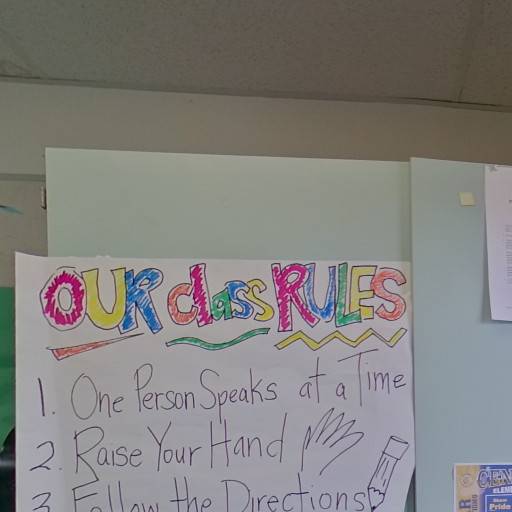 OUR class RULES
1. One Person Speaks at a Time
2. Raise Your Hand
3. Follow the Directions
CEN
ELEM
Pride